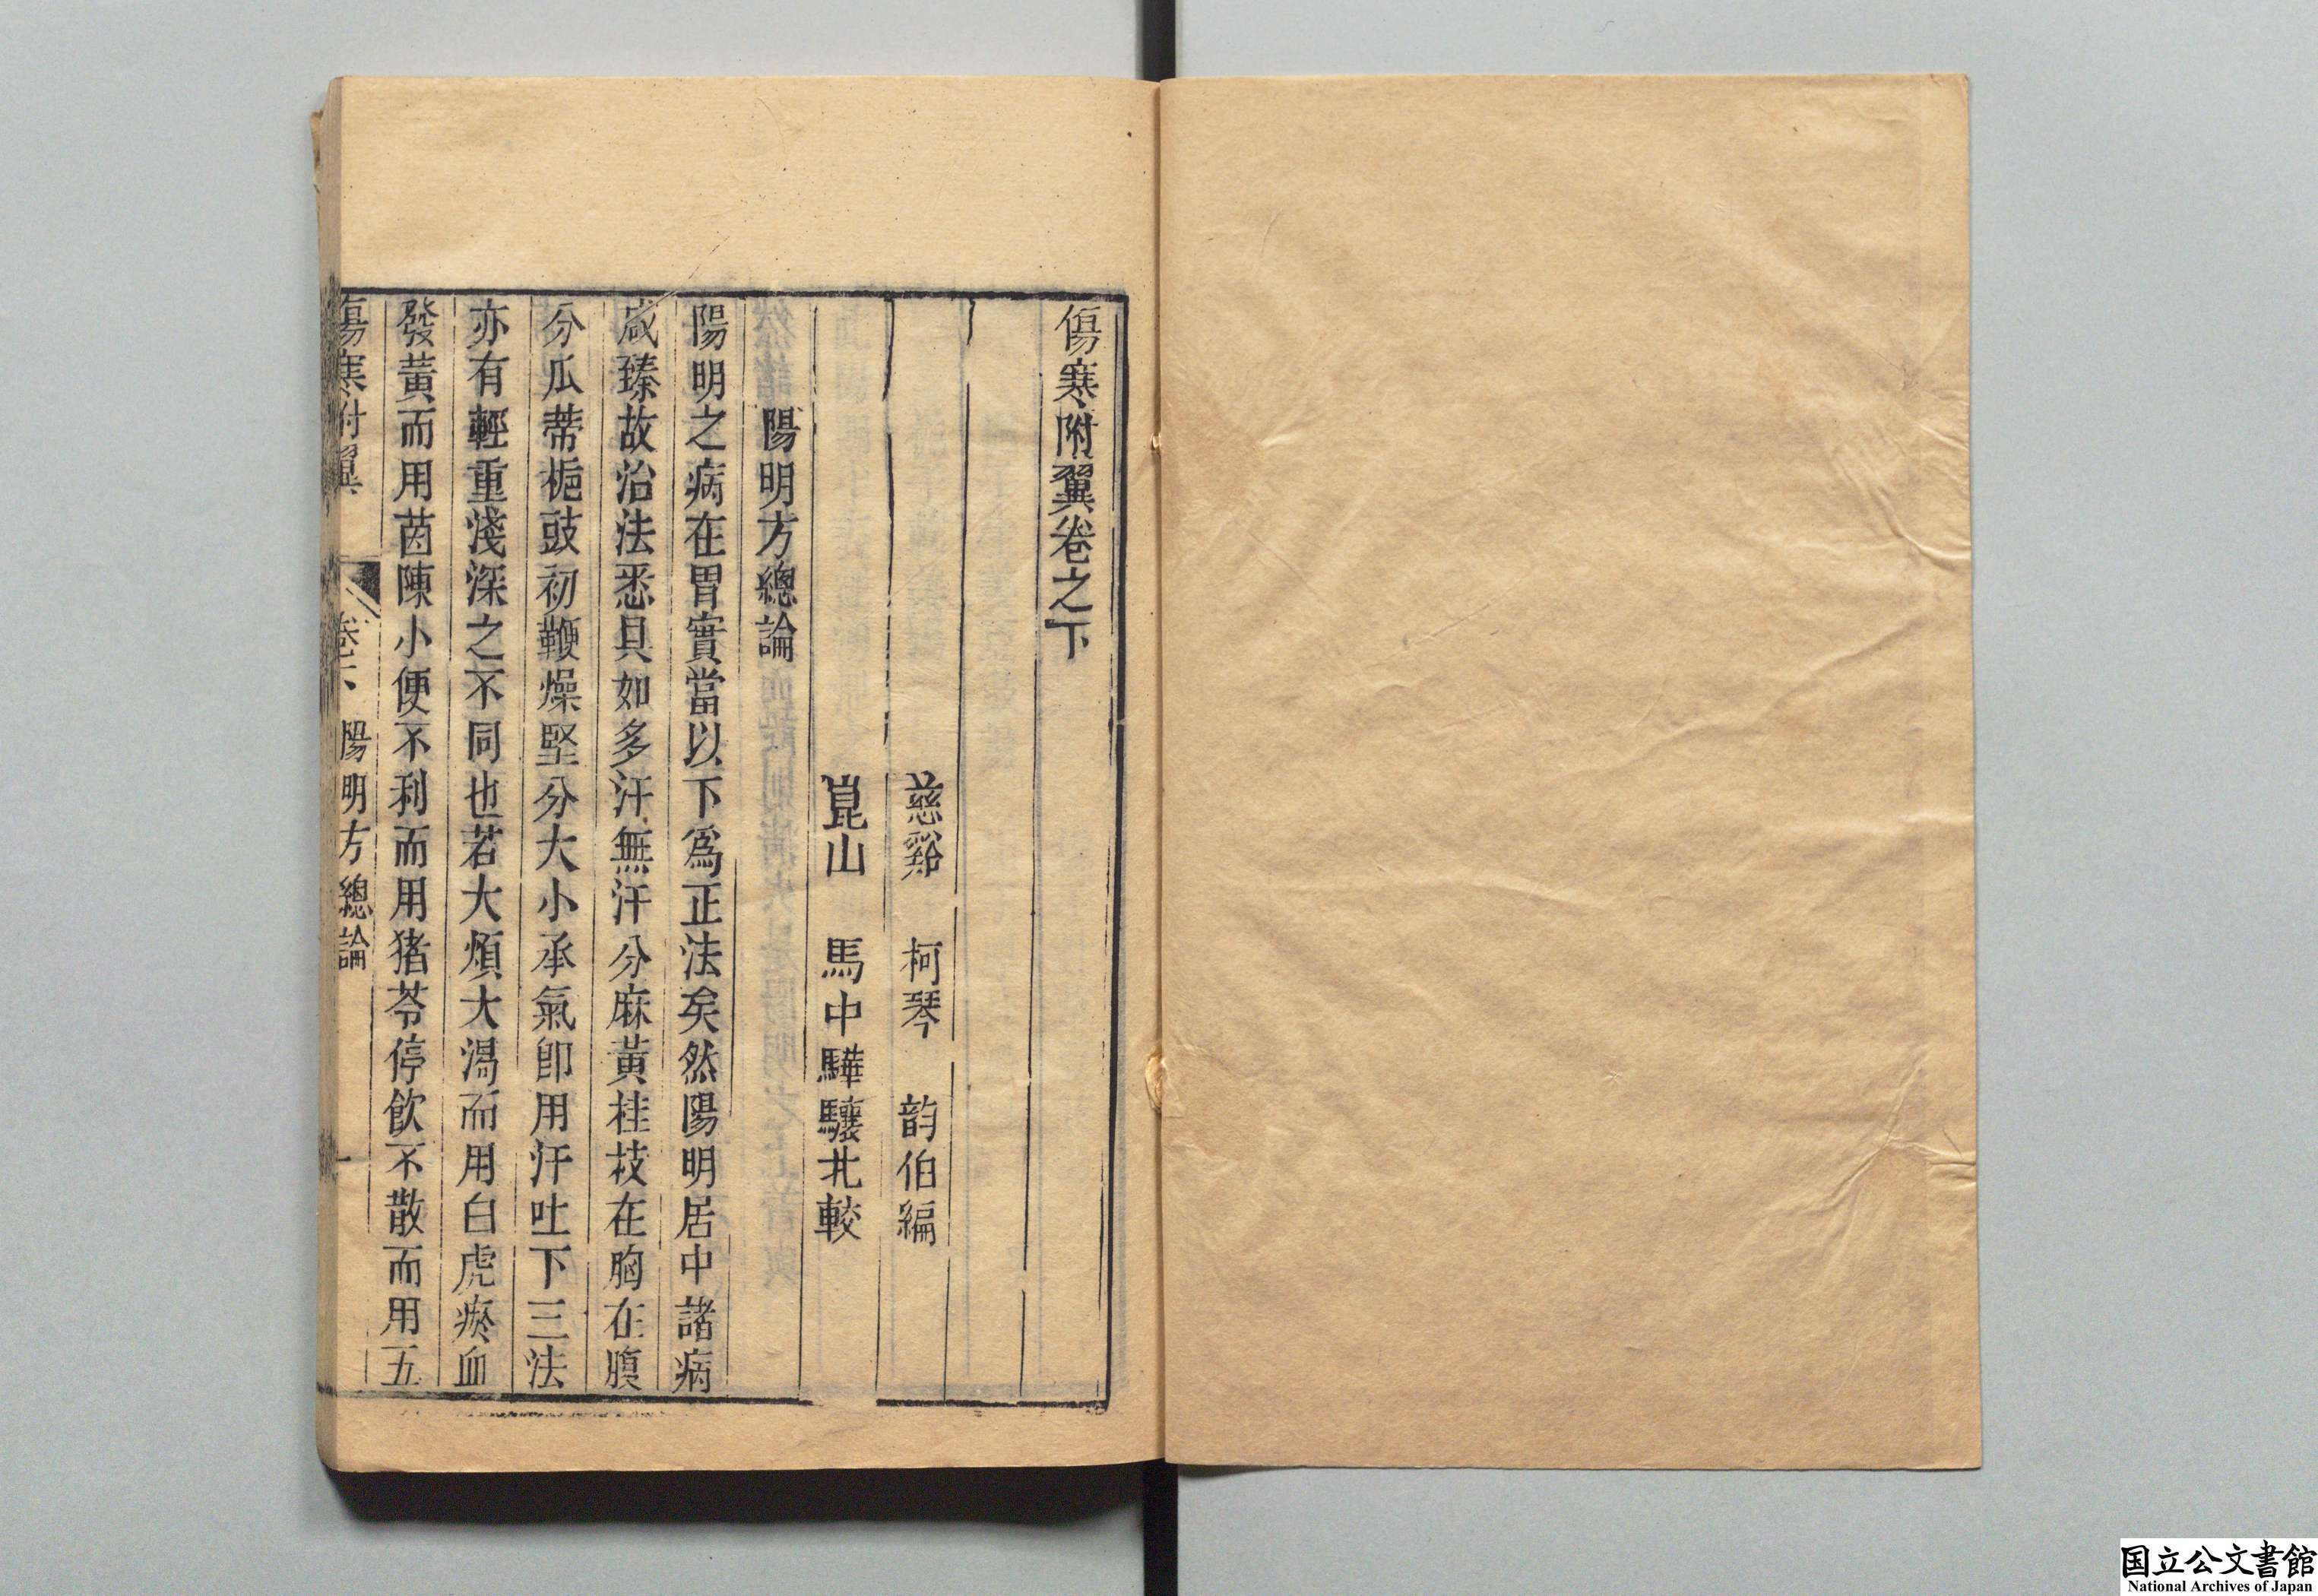 傷寒附翼卷之下
慈谿　柯琴　韵伯編
崑山　馬中驊驤北較
陽明方總論
陽明之病在胃實當以下爲正法矣然陽明居中諸病
咸臻故治法悉具如多汗無汗分麻黃桂枝在胸在腹
分瓜蒂梔豉初鞭燥堅分大小承氣卽用汗吐下三法
亦有輕重淺深之不同也若大煩大渴而用白虎瘀血
發黃而用茵陳小便不利而用猪苓停飮不散而用五
傷寒附翼　卷下　陽明方總論　一
国立公文書館
National Archives of Japan